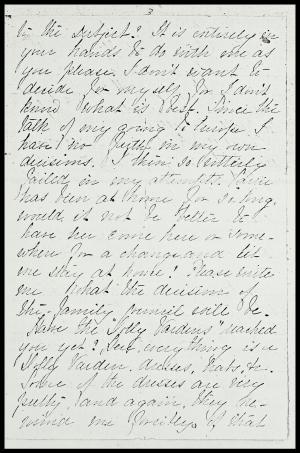 3
to the subject? It is entirely in
your hands to do with me as
you please, I don't want to
decide for myself, for I don't
kind what is best. Since the
talk of my going to Europe I
have no faith in my own
decisions. I skin so utterly
failed in my attempts.
has been at home for so long,
would it not be better to
have her come here or some-
where for a change and let
me stay at home? Please write
me what the decision of
the family council will be.
Have the "Dolly Vardens" reached
you yet? Here everything is a
Dolly Varden, dresses, hats, &c.
Some of the dresses are very
pretty, and again, they re-
mind me forcibly of that